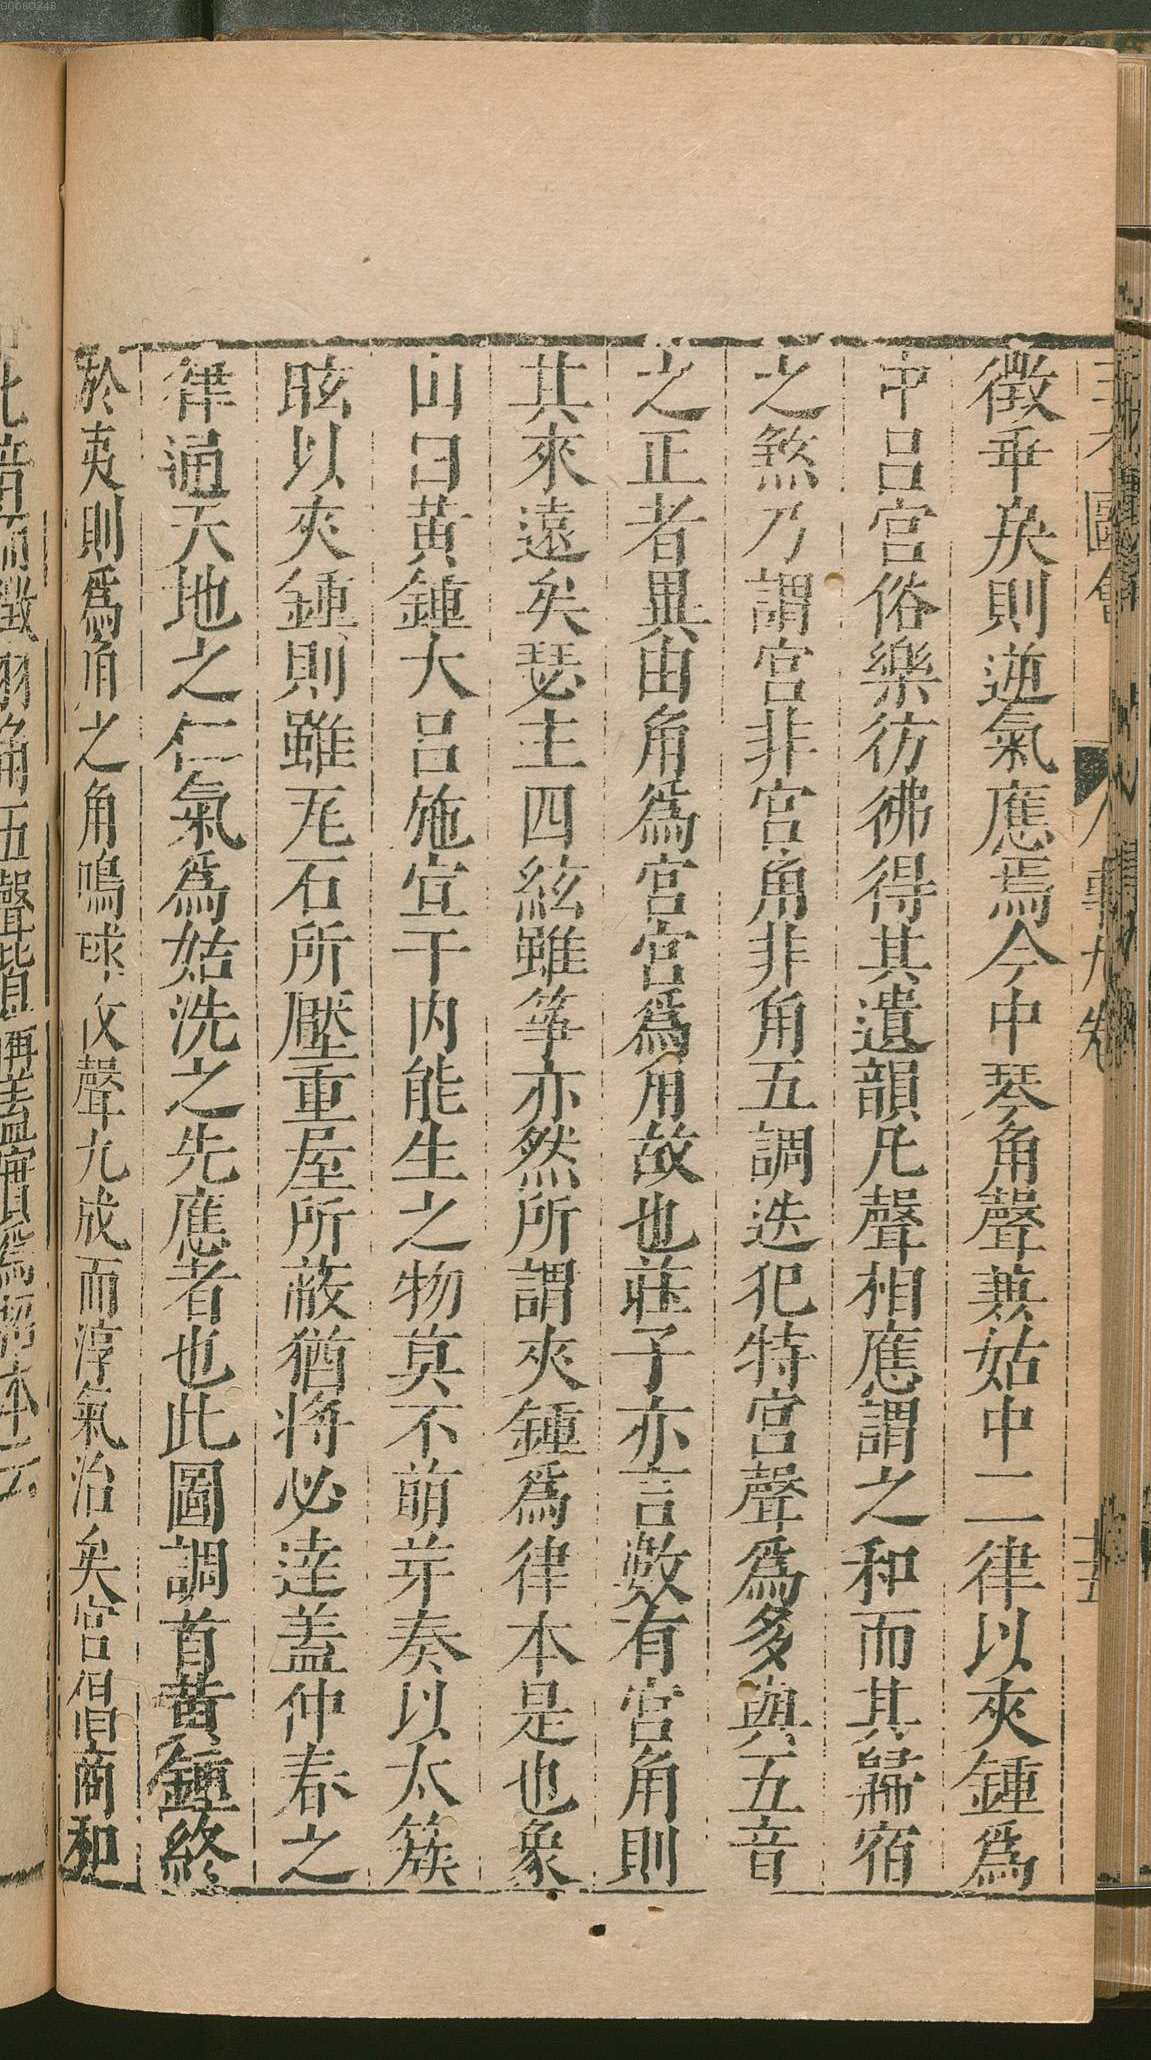 徵垂戾則逆氣應焉今中琴角聲蕪姑中二律以夾鍾爲
中呂宮俗樂彷彿得其遺韻凡聲相應謂之和而其歸宿
之煞乃謂宮非宮角非角五調迭犯特宮聲爲多與五音
之正者異由角爲宮宮爲角故也莊子亦言數有宮角則
其來遠矣瑟主四絃雖箏亦然所謂夾鍾爲律本是也象
山曰黃鍾大呂施宣于内能生之物莫不萌芽奏以太簇
昡以夾鍾則雖瓦石所壓重屋所蔽猶將必達蓋仲春之
律通天地之仁氣爲姑洗之先應者也此圖調首黃鍾終
於夷則爲角之角鳴球攵聲九成而淳氣治矣宮倡商和